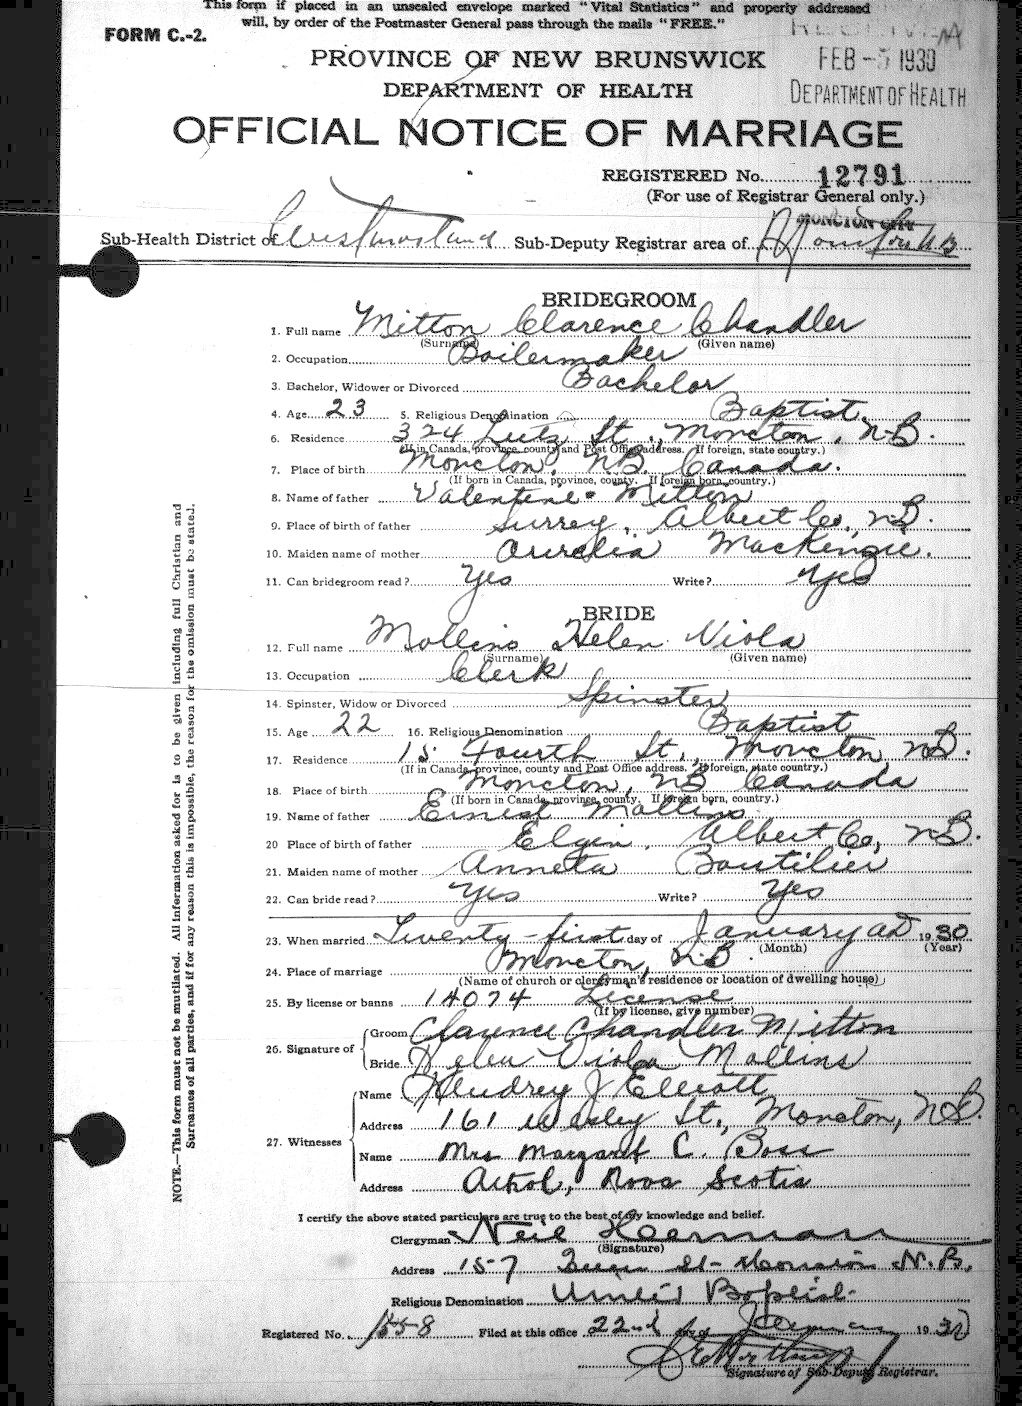 This form if placed in an unsealed envelope marked "Vital Statistics" and properly addressed
will, by order of the Postmaster General pass through the mails "FREE."
FORM C.-2.
FEB -5 1930
DEPARTMENT OF HEALTH
PROVINCE OF NEW BRUNSWICK
DEPARTMENT OF HEALTH
OFFICIAL NOTICE OF MARRIAGE
REGISTERED No. 12791
(For use of Registrar General only.)
MONCTON CITY
Sub-Health District of Westmorland Sub-Deputy Registrar area of Moncton N.B
BRIDEGROOM
1. Full name Mitton Clarence Chandler
(Surname) (Given name)
2. Occupation Boilermaker
3. Bachelor, Widower or Divorced Bachelor
4. Age 23 5. Religious Denomination Baptist
6. Residence 324 Lutz St., Moncton, N.B.
(If in Canada, province, county and Post Office address. If foreign, state country.)
7. Place of birth Moncton, N.B. Canada.
(If born in Canada, province, county. If foreign born, country.)
8. Name of father Valentine Mitton
9. Place of birth of father Surrey, Albert Co., N.B.
10. Maiden name of mother Aurelia MacKenzie.
11. Can bridegroom read? Yes Write? Yes
BRIDE
12. Full name Mollins Helen Viola
(Surname) (Given name)
13. Occupation Clerk
14. Spinster, Widow or Divorced Spinster
15. Age 22 16. Religious Denomination Baptist
17. Residence 15 Fourth St., Moncton, N.B.
(If in Canada, province, county and Post Office address. If foreign, state country.)
18. Place of birth Moncton, N.B. Canada
(If born in Canada, province, county. If foreign born, country.)
19. Name of father Ernest Mollins
20 Place of birth of father Elgin, Albert Co, N.B.
21. Maiden name of mother Anneta Boutilier
22. Can bride read? Yes Write? Yes
23. When married Twenty-first day of January AD 1930
(Month) (Year)
24. Place of marriage Moncton, N.B.
(Name of church or clergyman's residence or location of dwelling house)
25. By license or banns 14074 License
(If by license, give number)
26. Signature of Groom Clarence Chandler Mitton
Bride Helen Viola Mollins
27. Witnesses
Name Audrey J Elliott
Address 161 Wesley St., Moncton, N.B.
Name Mrs Margaret C. Boss
Address Athol, Nova Scotia
I certify the above stated particulars are true to the best of my knowledge and belief.
Clergyman Neil Herman
(Signature)
Address 157 Queen St- Moncton N.B.
Religious Denomination United Baptist
Registered No. 1558 Filed at this office 22nd day of January 1930
Signature of Sub-Deputy Registrar.
NOTE.—This form must not be mutilated. All information asked for is to be given including full Christian and
Surnames of all parties, and if for any reason this is impossible, the reason for the omission must be stated.